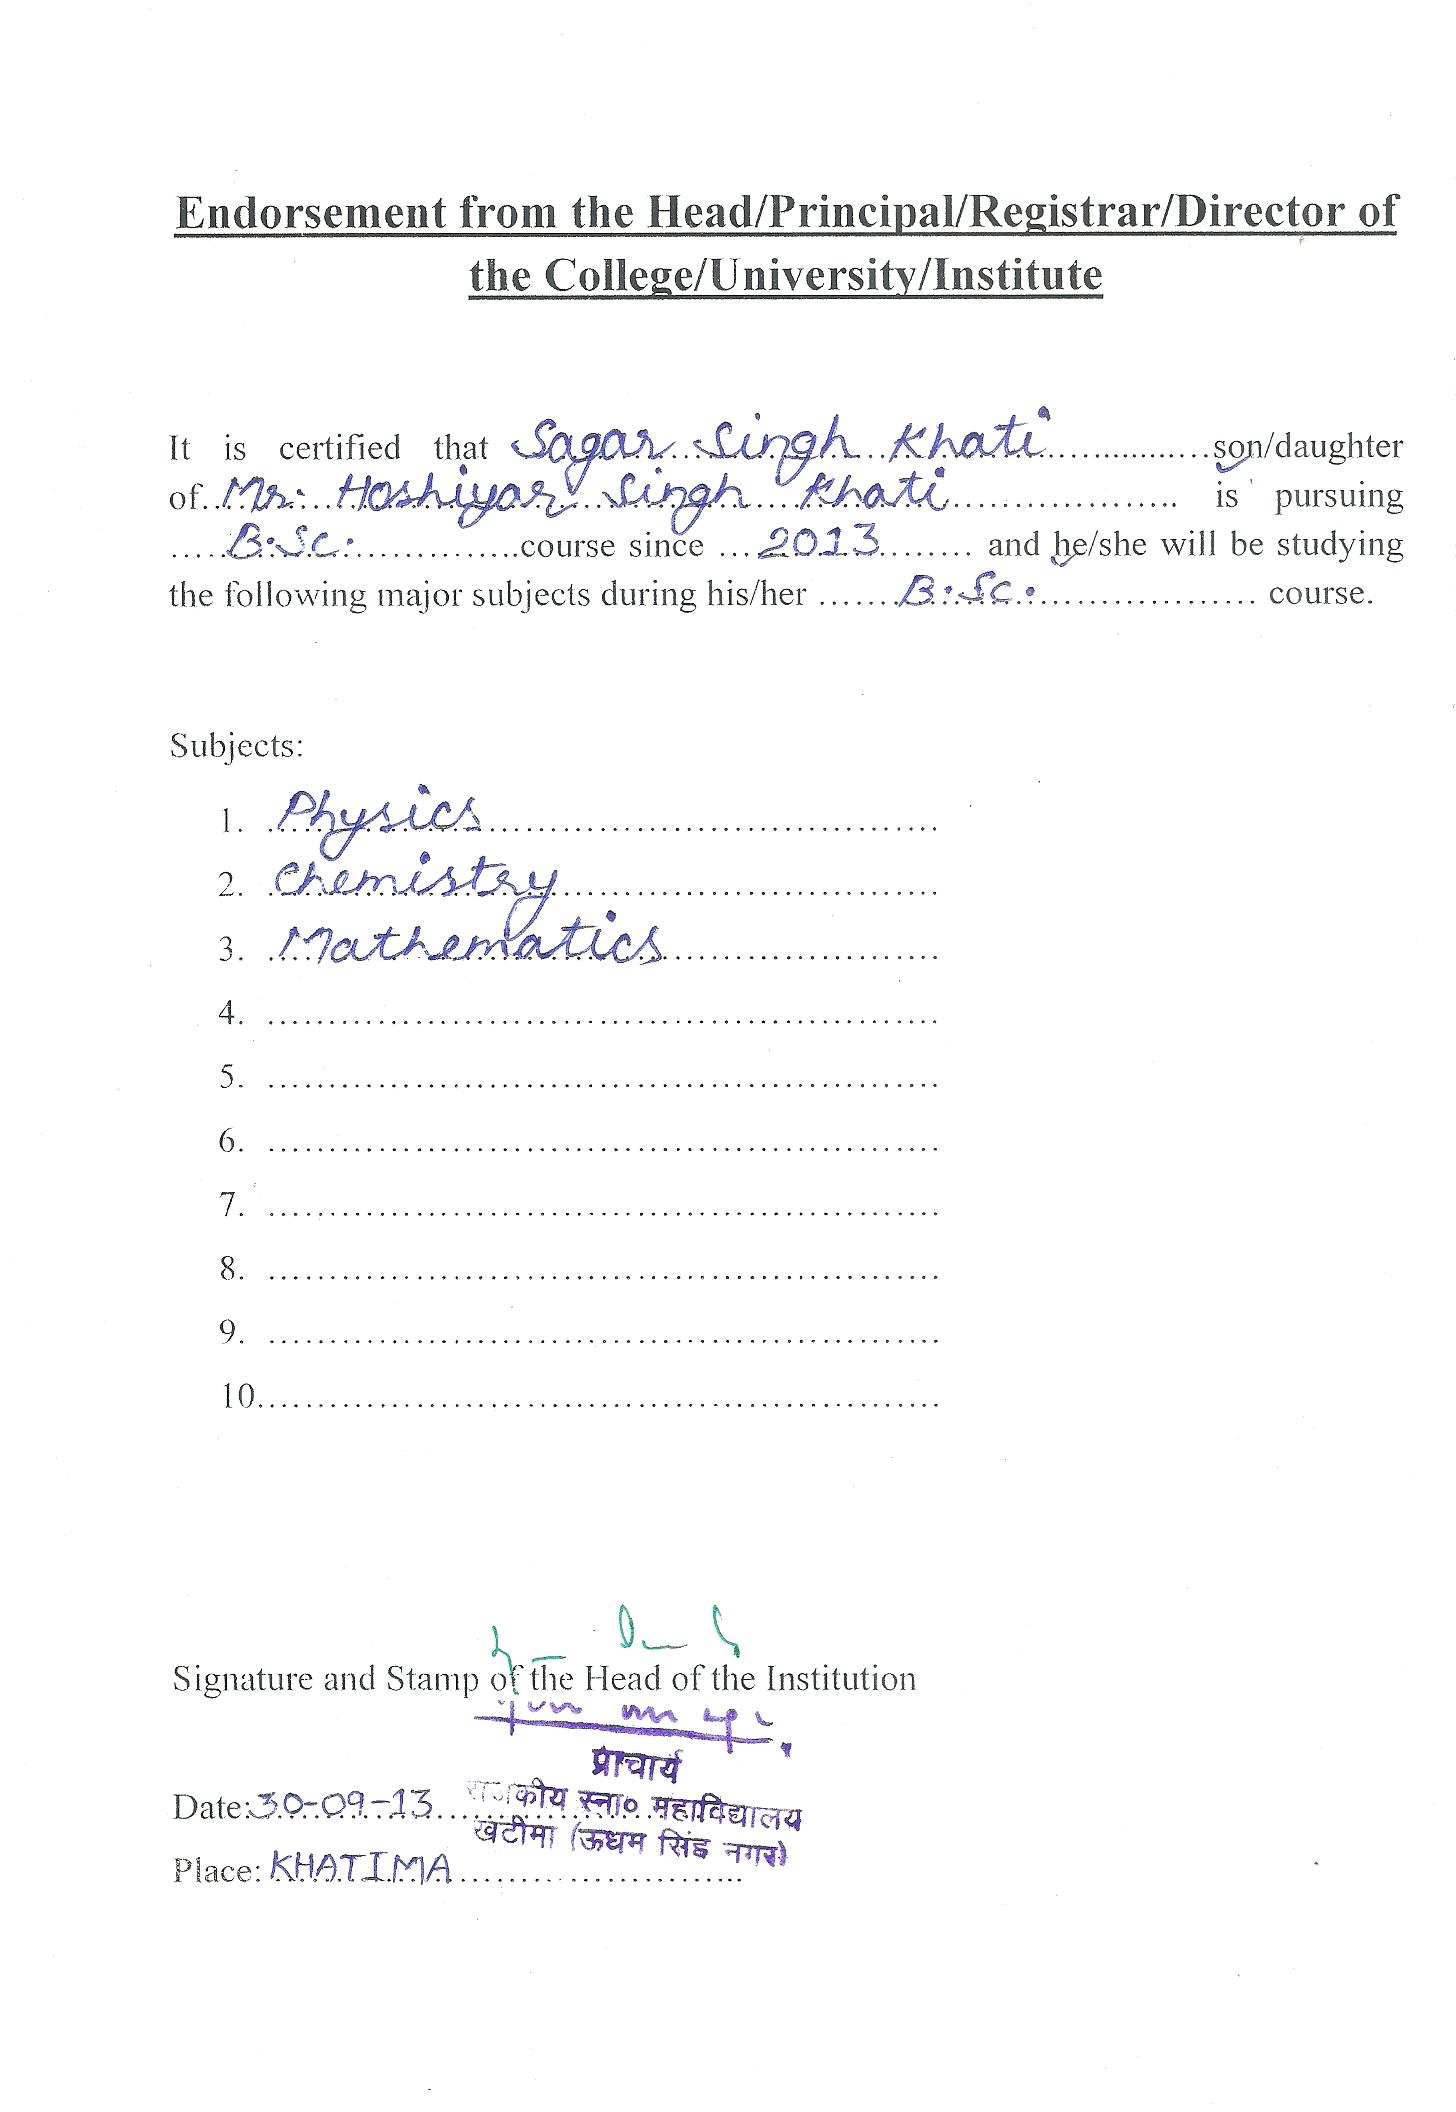 Endorsement from the Head/Principal/Registrar/Director of
the College/University/Institute
It is certified that Sagar Singh Khati son/daughter
of Mr. Hoshiyar Singh Khati is pursuing
B.Sc. course since 2013 and he/she will be studying
the following major subjects during his/her B.Sc. course.
Subjects:
1. Physics
2. Chemistry
3. Mathematics
4.
5.
6.
7.
8.
9.
10.
Signature and Stamp of the Head of the Institution
प्राचार्य
राजकीय स्ना० महाविद्यालय
खटीमा (ऊधम सिंह नगर)
Date: 30-09-13
Place: KHATIMA